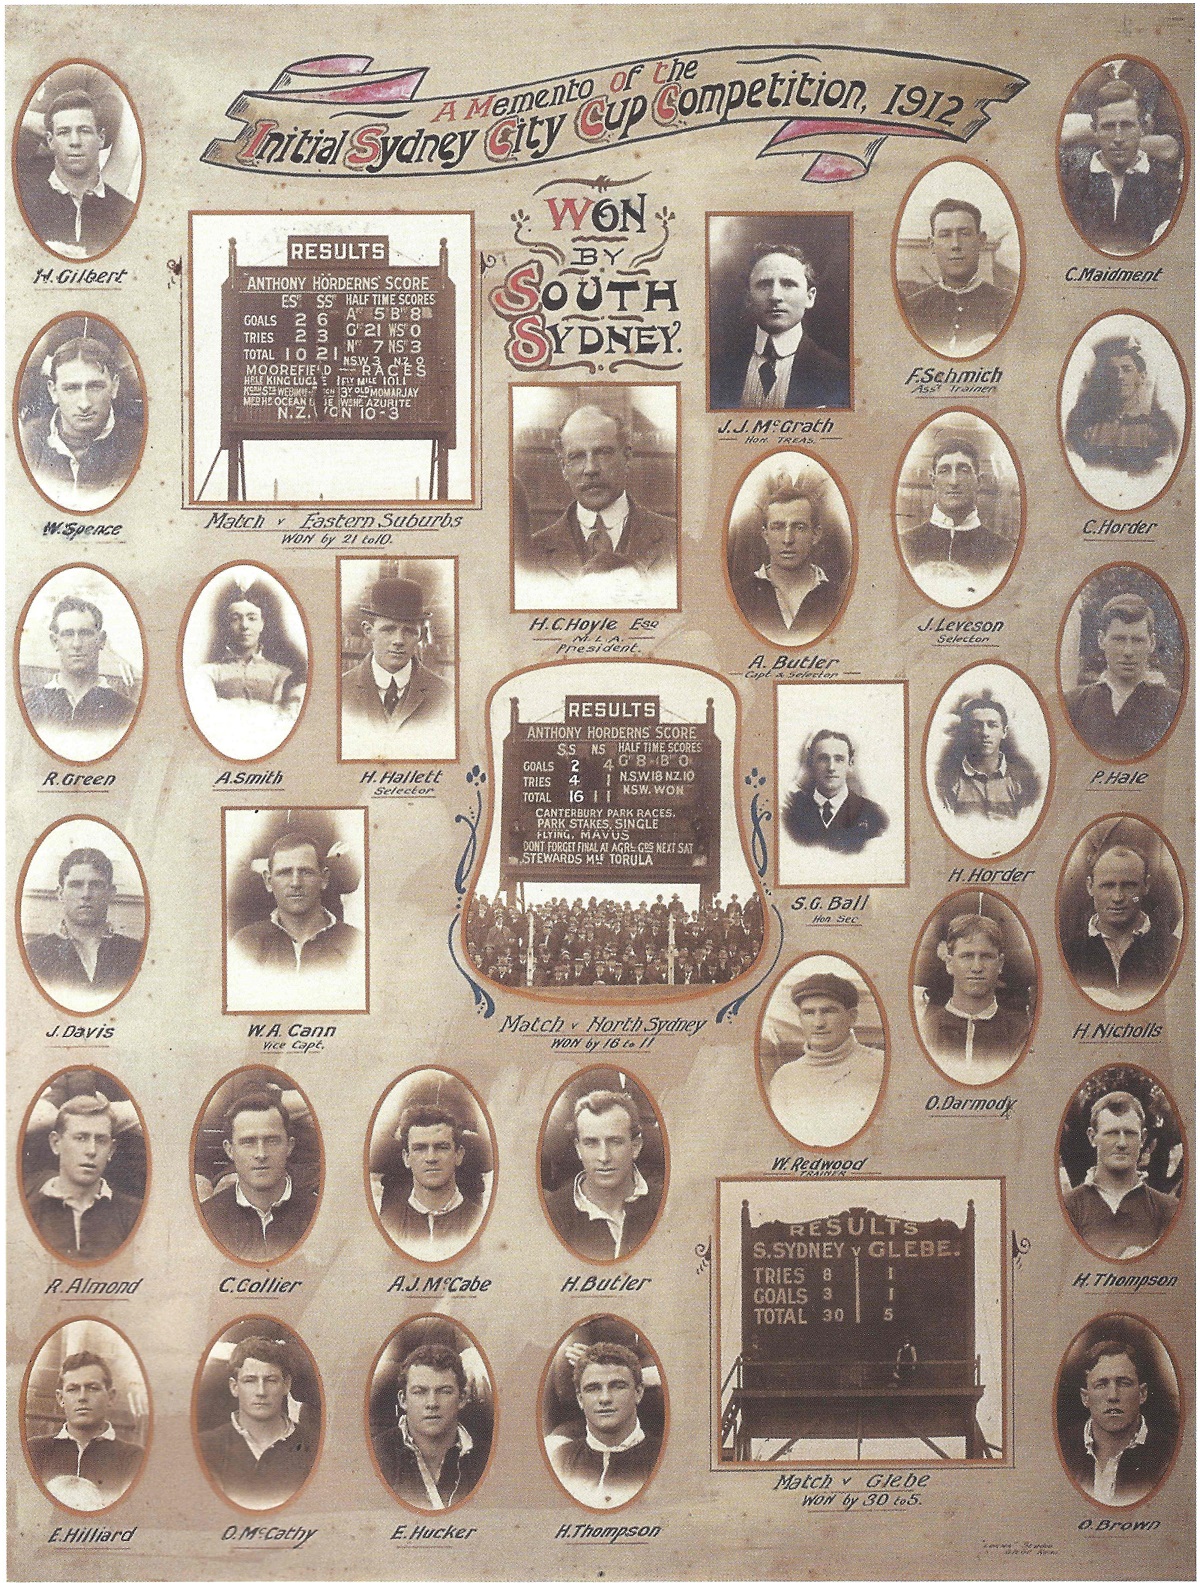 A Memento of the
Initial Sydney City Cup Competition, 1912
WON
BY
SOUTH
SYDNEY.
H. Gilbert
W. Spence
R. Green
J. Davis
R. Almond
E. Hilliard
RESULTS
ANTHONY HORDERNS' SCORE
ES SS HALF TIME SCORES
GOALS 2 6 A 5 B 8
TRIES 2 3 G 21 WS 0
TOTAL 10 21 N 7 NS 3
N.S.W 3 NZ 0
MOOREFIELD RACES
N.Z. WON 10-3
Match v Eastern Suburbs
WON by 21 to 10.
A. Smith
H. Hallett
Selector
W.A. Cann
Vice Capt.
H. C Hoyle Esq
M.L.A.
President.
J. J. McGrath
HON. TREAS.
F. Schmich
Asst Trainer
C. Maidment
A. Butler
Capt & Selector
J. Leveson
Selector
C. Horder
RESULTS
ANTHONY HORDERNS' SCORE
S.S NS HALF TIME SCORES
GOALS 2 4 G 8 B 0
TRIES 4 1 N.S.W 18 NZ. 10
TOTAL 16 11 N.S.W. WON
CANTERBURY PARK RACES.
PARK STAKES, SINGLE
FLYING, MAVUS
DONT FORGET FINAL AT AGRL GDS NEXT SAT
STEWARDS MLE TORULA
Match v North Sydney
WON by 16 to 11
S.G. Ball
Hon Sec
H. Horder
P. Hale
W. Redwood
TRAINER
O. Darmody
H. Nicholls
C. Collier
A.J. McCabe
H. Butler
O. McCathy
E. Hucker
H. Thompson
RESULTS
S. SYDNEY v GLEBE.
TRIES 8 1
GOALS 3 1
TOTAL 30 5
Match v Glebe
WON by 30 to 5.
H. Thompson
O. Brown